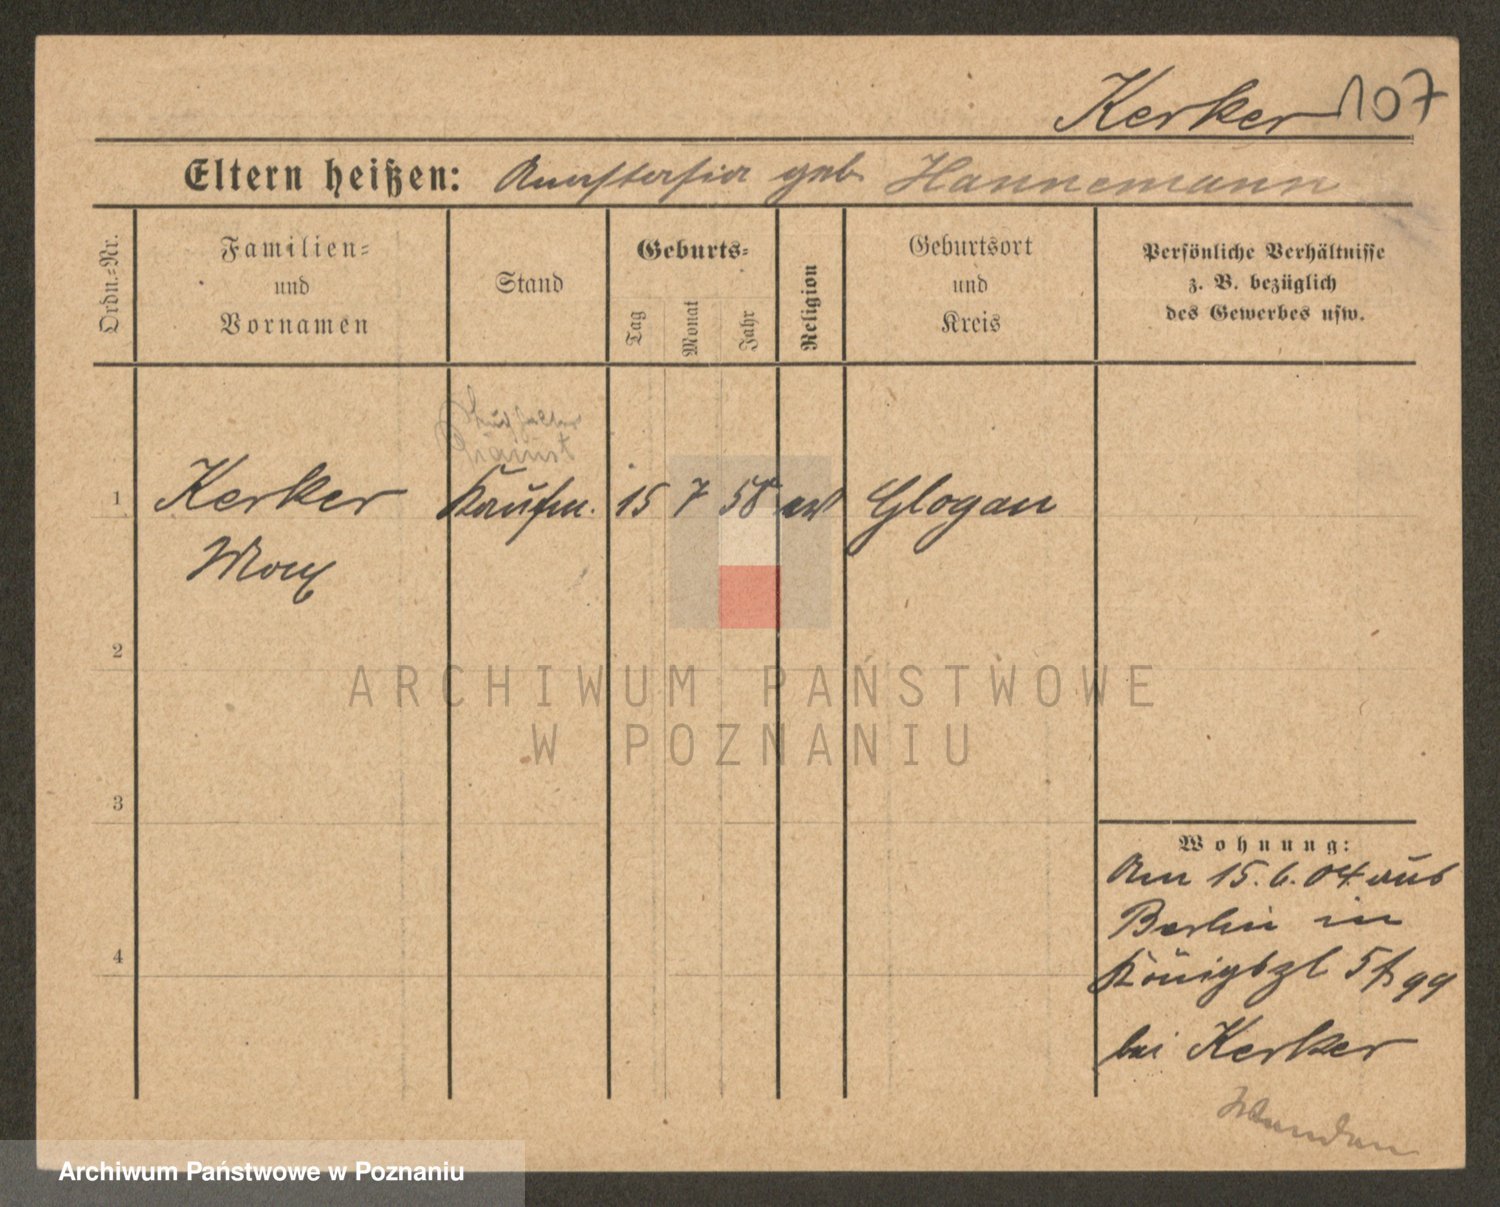 Kerker 107
Eltern heißen: Anastasia geb. Hannemann
Ordn.=Nr.
Familien=
und
Vornamen
Stand
Geburts=
Tag
Monat
Jahr
Religion
Geburtsort
und
Kreis
Persönliche Verhältnisse
z. B. bezüglich
des Gewerbes usw.
1 Kerker Kaufm. 15 7 58 Glogau
Max
2
3
4
ARCHIWUM PAŃSTWOWE
W POZNANIU
Wohnung:
Am 15. 6. 04 aus
Berlin in
Königspl 5
bei Kerker
Archiwum Państwowe w Poznaniu